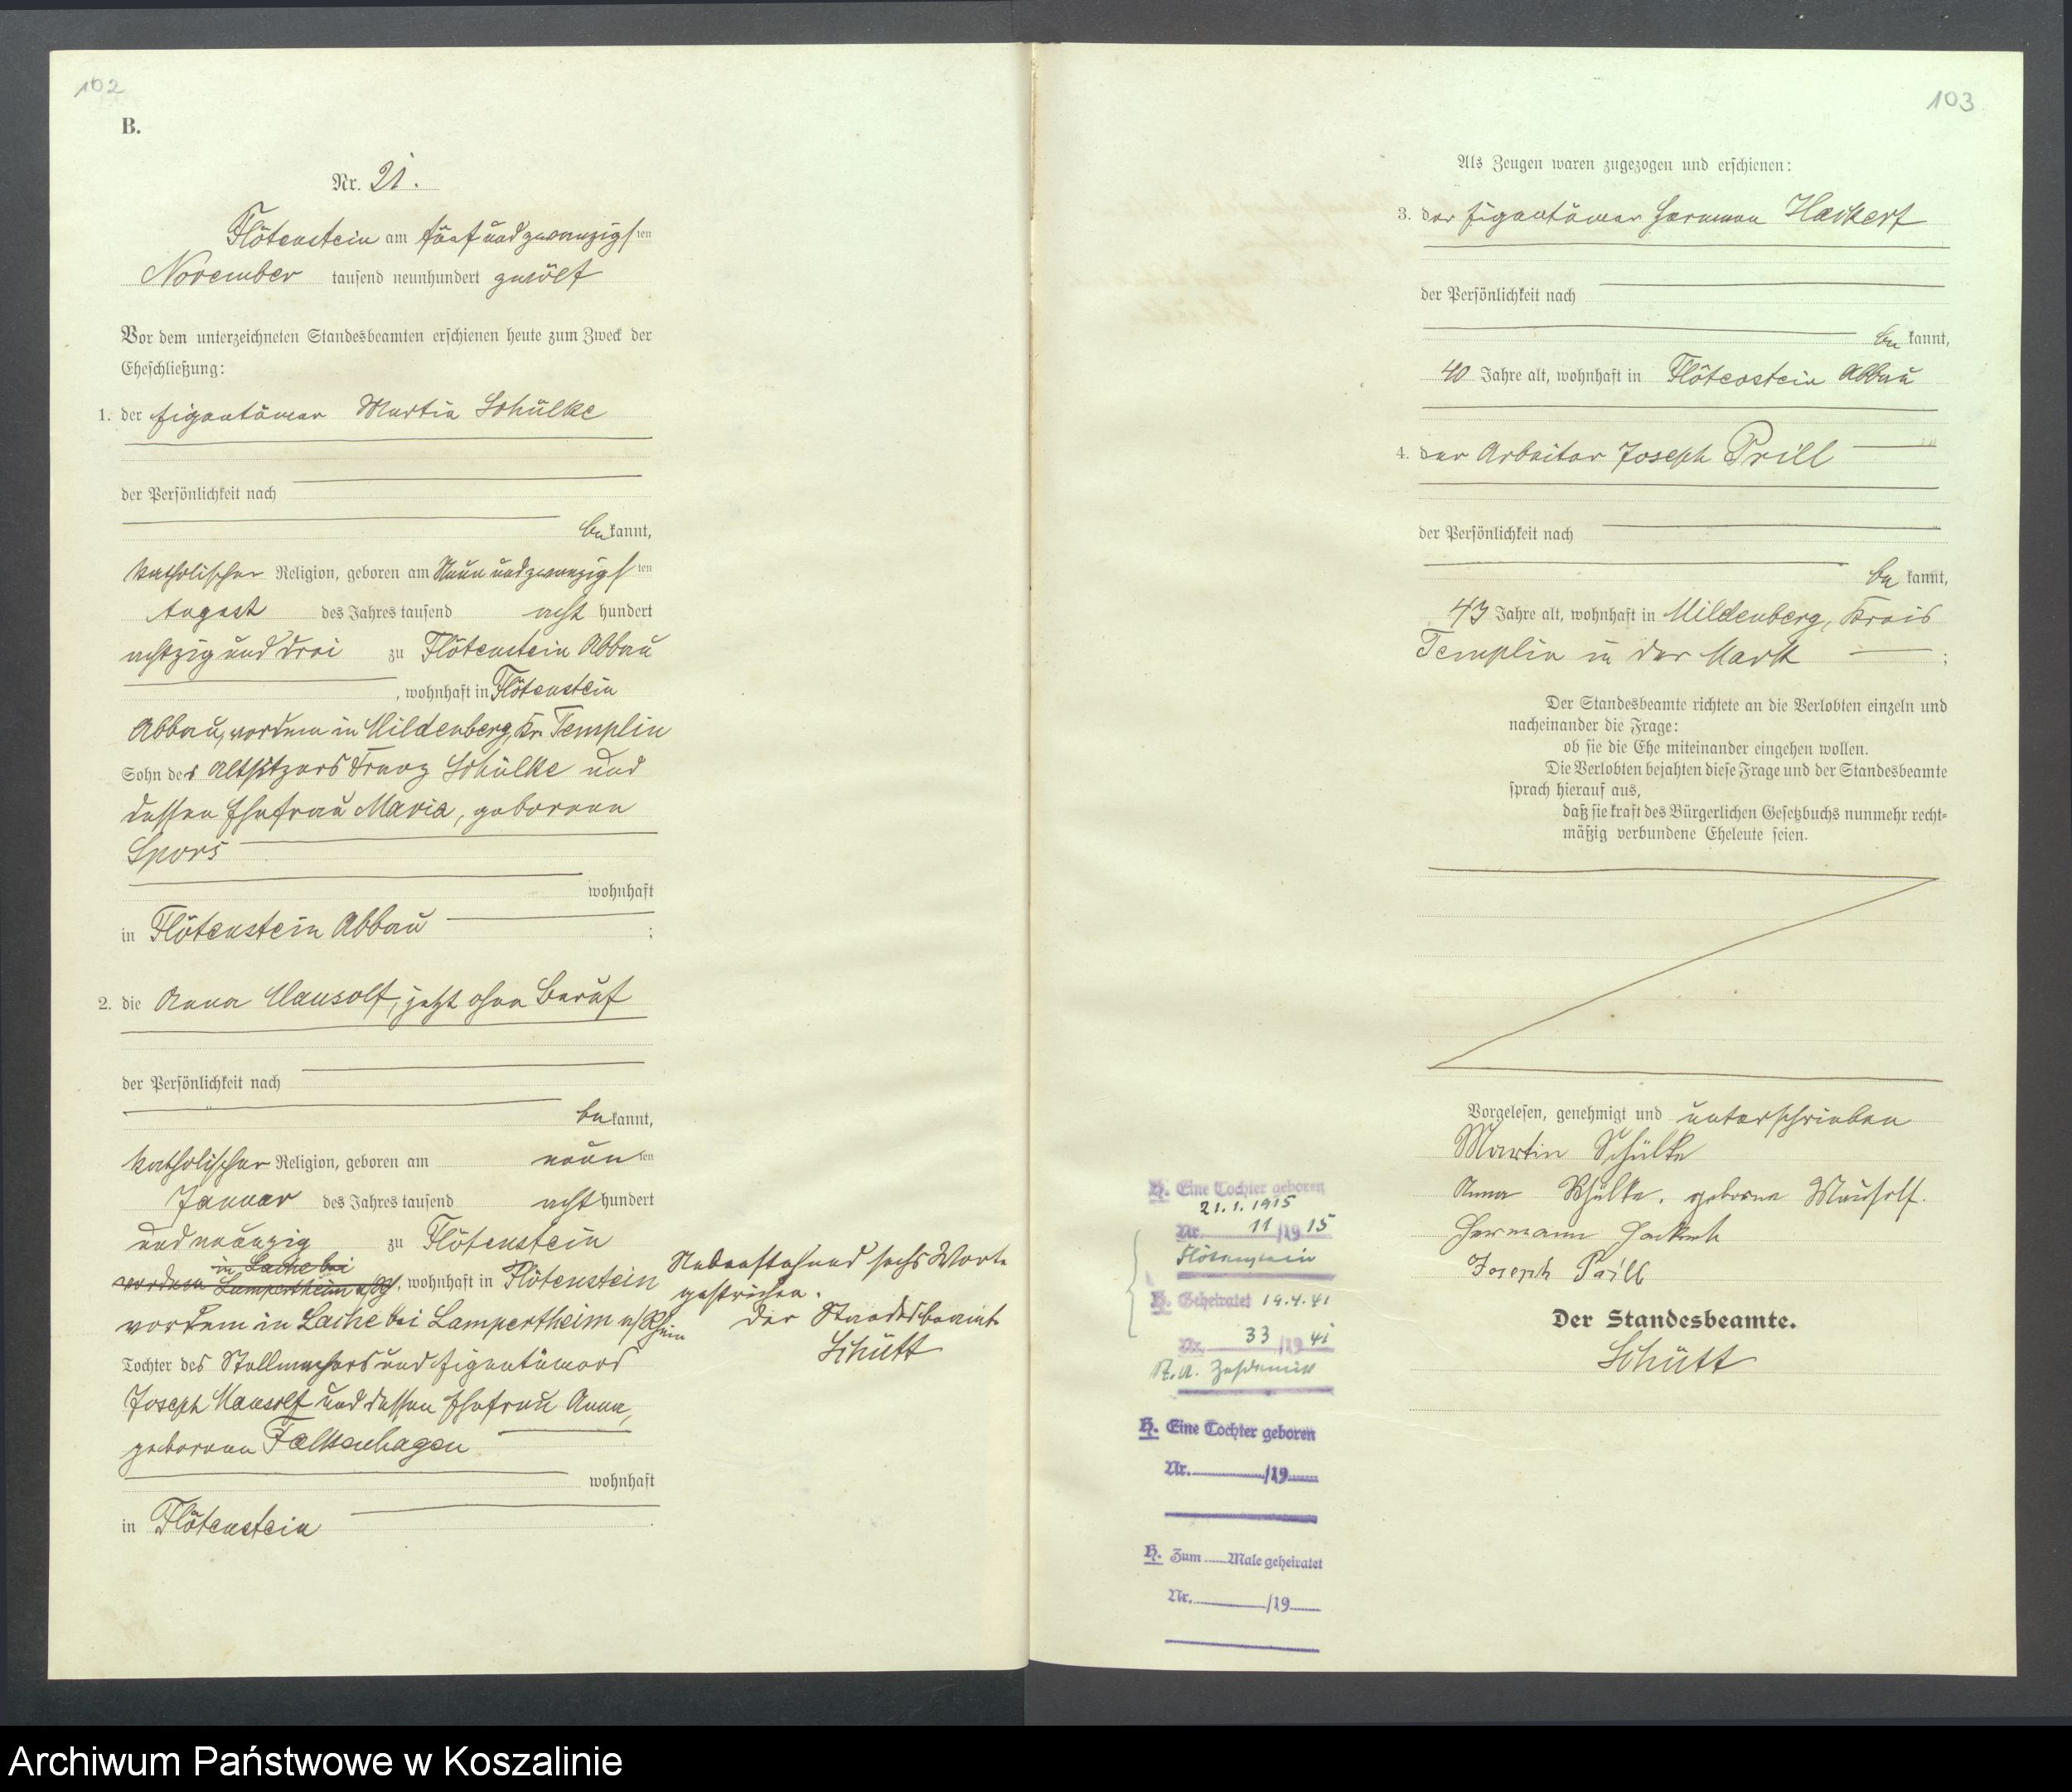 102
B.
Nr. 21.
Flötenstein am fünfundzwanzigsten
November tausend neunhundert zwölf
Vor dem unterzeichneten Standesbeamten erschienen heute zum Zweck der
Eheschließung:
1. der Eigentümer Martin Schülke
der Persönlichkeit nach
bekannt,
katholischer Religion, geboren am Neunundzwanzigsten
August des Jahres tausend acht hundert
achtzig und drei zu Flötenstein Abbau
, wohnhaft in Flötenstein
Abbau, vordem in Mildenberg, Kr. Templin
Sohn des Altsitzers Franz Schülke und
dessen Ehefrau Maria, geborenen
Spors
wohnhaft
in Flötenstein Abbau ;
2. die Anna Mausolf, jetzt ohne Beruf
der Persönlichkeit nach
bekannt,
katholischer Religion, geboren am neunten
Januar des Jahres tausend acht hundert
und neunzig zu Flötenstein
in Lache bei
vordem Lampertheim a/Rh, wohnhaft in Flötenstein
vordem in Lache bei Lampertheim a/Rhein
Tochter des Stellmachers und Eigentümers
Joseph Mausolf und dessen Ehefrau Anna,
geborenen Falkenhagen
wohnhaft
in Flötenstein
Nebenstehend sechs Worte
gestrichen.
Der Standesbeamte
Schütt
103
Als Zeugen waren zugezogen und erschienen:
3. der Eigentümer Herman Hackert
der Persönlichkeit nach
bekannt,
40 Jahre alt, wohnhaft in Flötenstein Abbau
4. der Arbeiter Joseph Prill
der Persönlichkeit nach
bekannt,
43 Jahre alt, wohnhaft in Mildenberg, Kreis
Templin in der Mark ;
Der Standesbeamte richtete an die Verlobten einzeln und
nacheinander die Frage:
ob sie die Ehe miteinander eingehen wollen.
Die Verlobten bejahten diese Frage und der Standesbeamte
sprach hierauf aus,
daß sie kraft des Bürgerlichen Gesetzbuchs nunmehr recht-
mäßig verbundene Eheleute seien.
Vorgelesen, genehmigt und unterschrieben
Martin Schülke
Anna Schülke, geborene Mausolf.
Hermann Hackert
Joseph Prill
Der Standesbeamte.
Schütt
H. Eine Tochter geboren
21.1.1915
Nr. 11/1915
Flötenstein
H. Geheiratet 19.4.41
Nr. 33/1941
St.A. Zehdenick
H. Eine Tochter geboren
Nr. /19
H. Zum Male geheiratet
Nr. /19
Archiwum Państwowe w Koszalinie